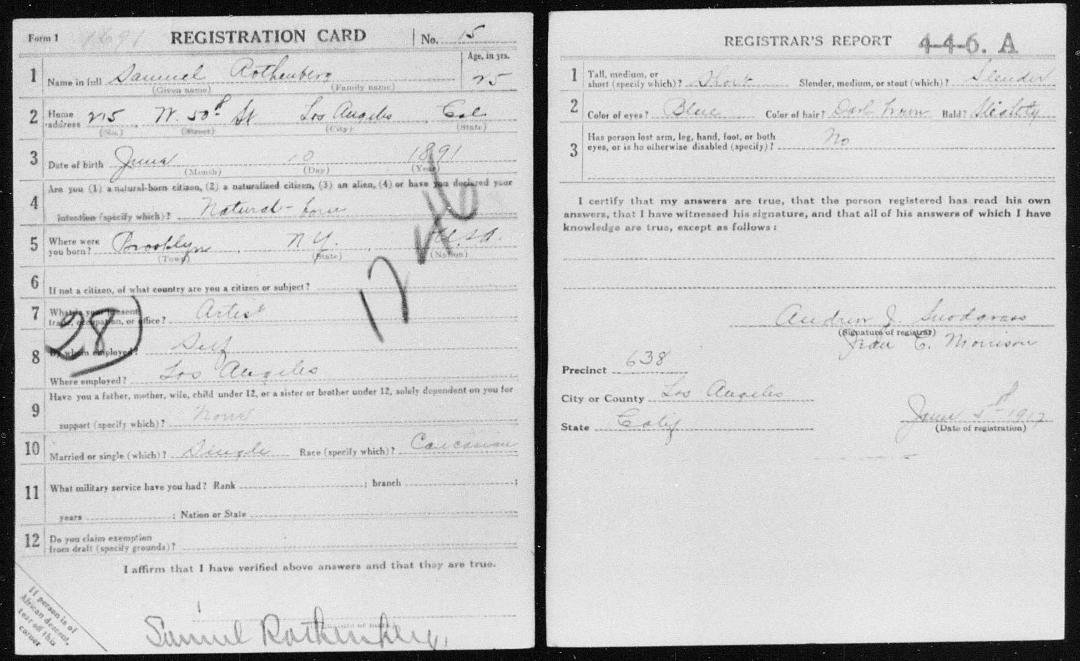 Form 1 1291 REGISTRATION CARD No. 15
1 Name in full Samuel Rothenberg Age, in yrs. 25
(Given name) (Family name)
2 Home address 215 W. 50th St Los Angeles Cal
(No.) (Street) (City) (State)
3 Date of birth June 10 1891
(Month) (Day) (Year)
4 Are you (1) a natural-born citizen, (2) a naturalized citizen, (3) an alien, (4) or have you declared your
intention (specify which)? Natural-born
5 Where were you born? Brooklyn N.Y. U.S.A.
(Town) (State) (Nation)
6 If not a citizen, of what country are you a citizen or subject?
7 What is your present trade, occupation, or office? Artist
28
12 26
8 By whom employed? Self
Where employed? Los Angeles
9 Have you a father, mother, wife, child under 12, or a sister or brother under 12, solely dependent on you for
support (specify which)? None
10 Married or single (which)? Single Race (specify which)? Caucasian
11 What military service have you had? Rank ; branch ;
years ; Nation or State
12 Do you claim exemption
from draft (specify grounds)?
I affirm that I have verified above answers and that they are true.
If person is of
African descent,
tear off this
corner
Samuel Rothenberg
REGISTRAR'S REPORT 4-4-6. A
1 Tall, medium, or short (specify which)? Short Slender, medium, or stout (which)? Slender
2 Color of eyes? Blue Color of hair? Dark brown Bald? Slightly
3 Has person lost arm, leg, hand, foot, or both
eyes, or is he otherwise disabled (specify)? No
I certify that my answers are true, that the person registered has read his own
answers, that I have witnessed his signature, and that all of his answers of which I have
knowledge are true, except as follows:
Andrew J. Snodgrass
(Signature of registrar)
E. Morrison
Precinct 638
City or County Los Angeles
State Calif
June 5th 1917
(Date of registration)